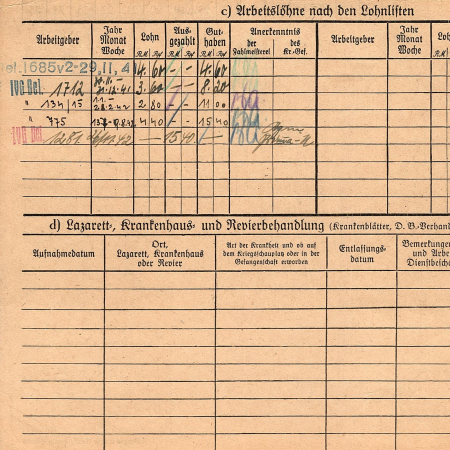 c) Arbeitslöhne nach den Lohnlisten
Arbeitgeber
Jahr Monat Woche
Lohn
R.M. Rpf
Aus- gezahlt
R.M. Rpf
Gut- haben
R.M. Rpf
Anerkenntnis
der Zahlmeisterei
des Kr.-Gef.
Arbeitgeber
Jahr Monat Woche
Lohn
Del. 1685 v 2-29. II. 4 4.60 - - 4.60
IVG Del. 1712 31.12.41 3.60 - - 8.20
" 134/15 28.2.42 2 80 - - 11 00
" 775 4 40 - - 15 40
IVG Del 1281 - 15 40 -
d) Lazarett-, Krankenhaus- und Revierbehandlung (Krankenblätter, D. B.-Verhand
Aufnahmedatum
Ort, Lazarett, Krankenhaus oder Revier
Art der Krankheit und ob auf dem Kriegsschauplatz oder in der Gefangenschaft erworben
Entlassungs- datum
Bemerkungen und Arbe Dienstbesch